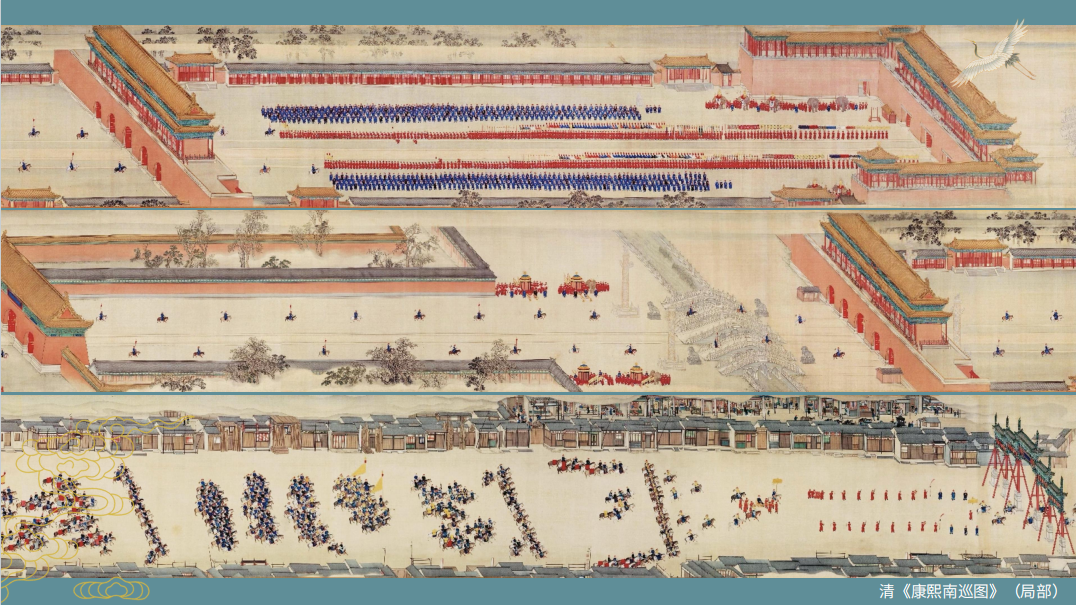 清《康熙南巡图》（局部）